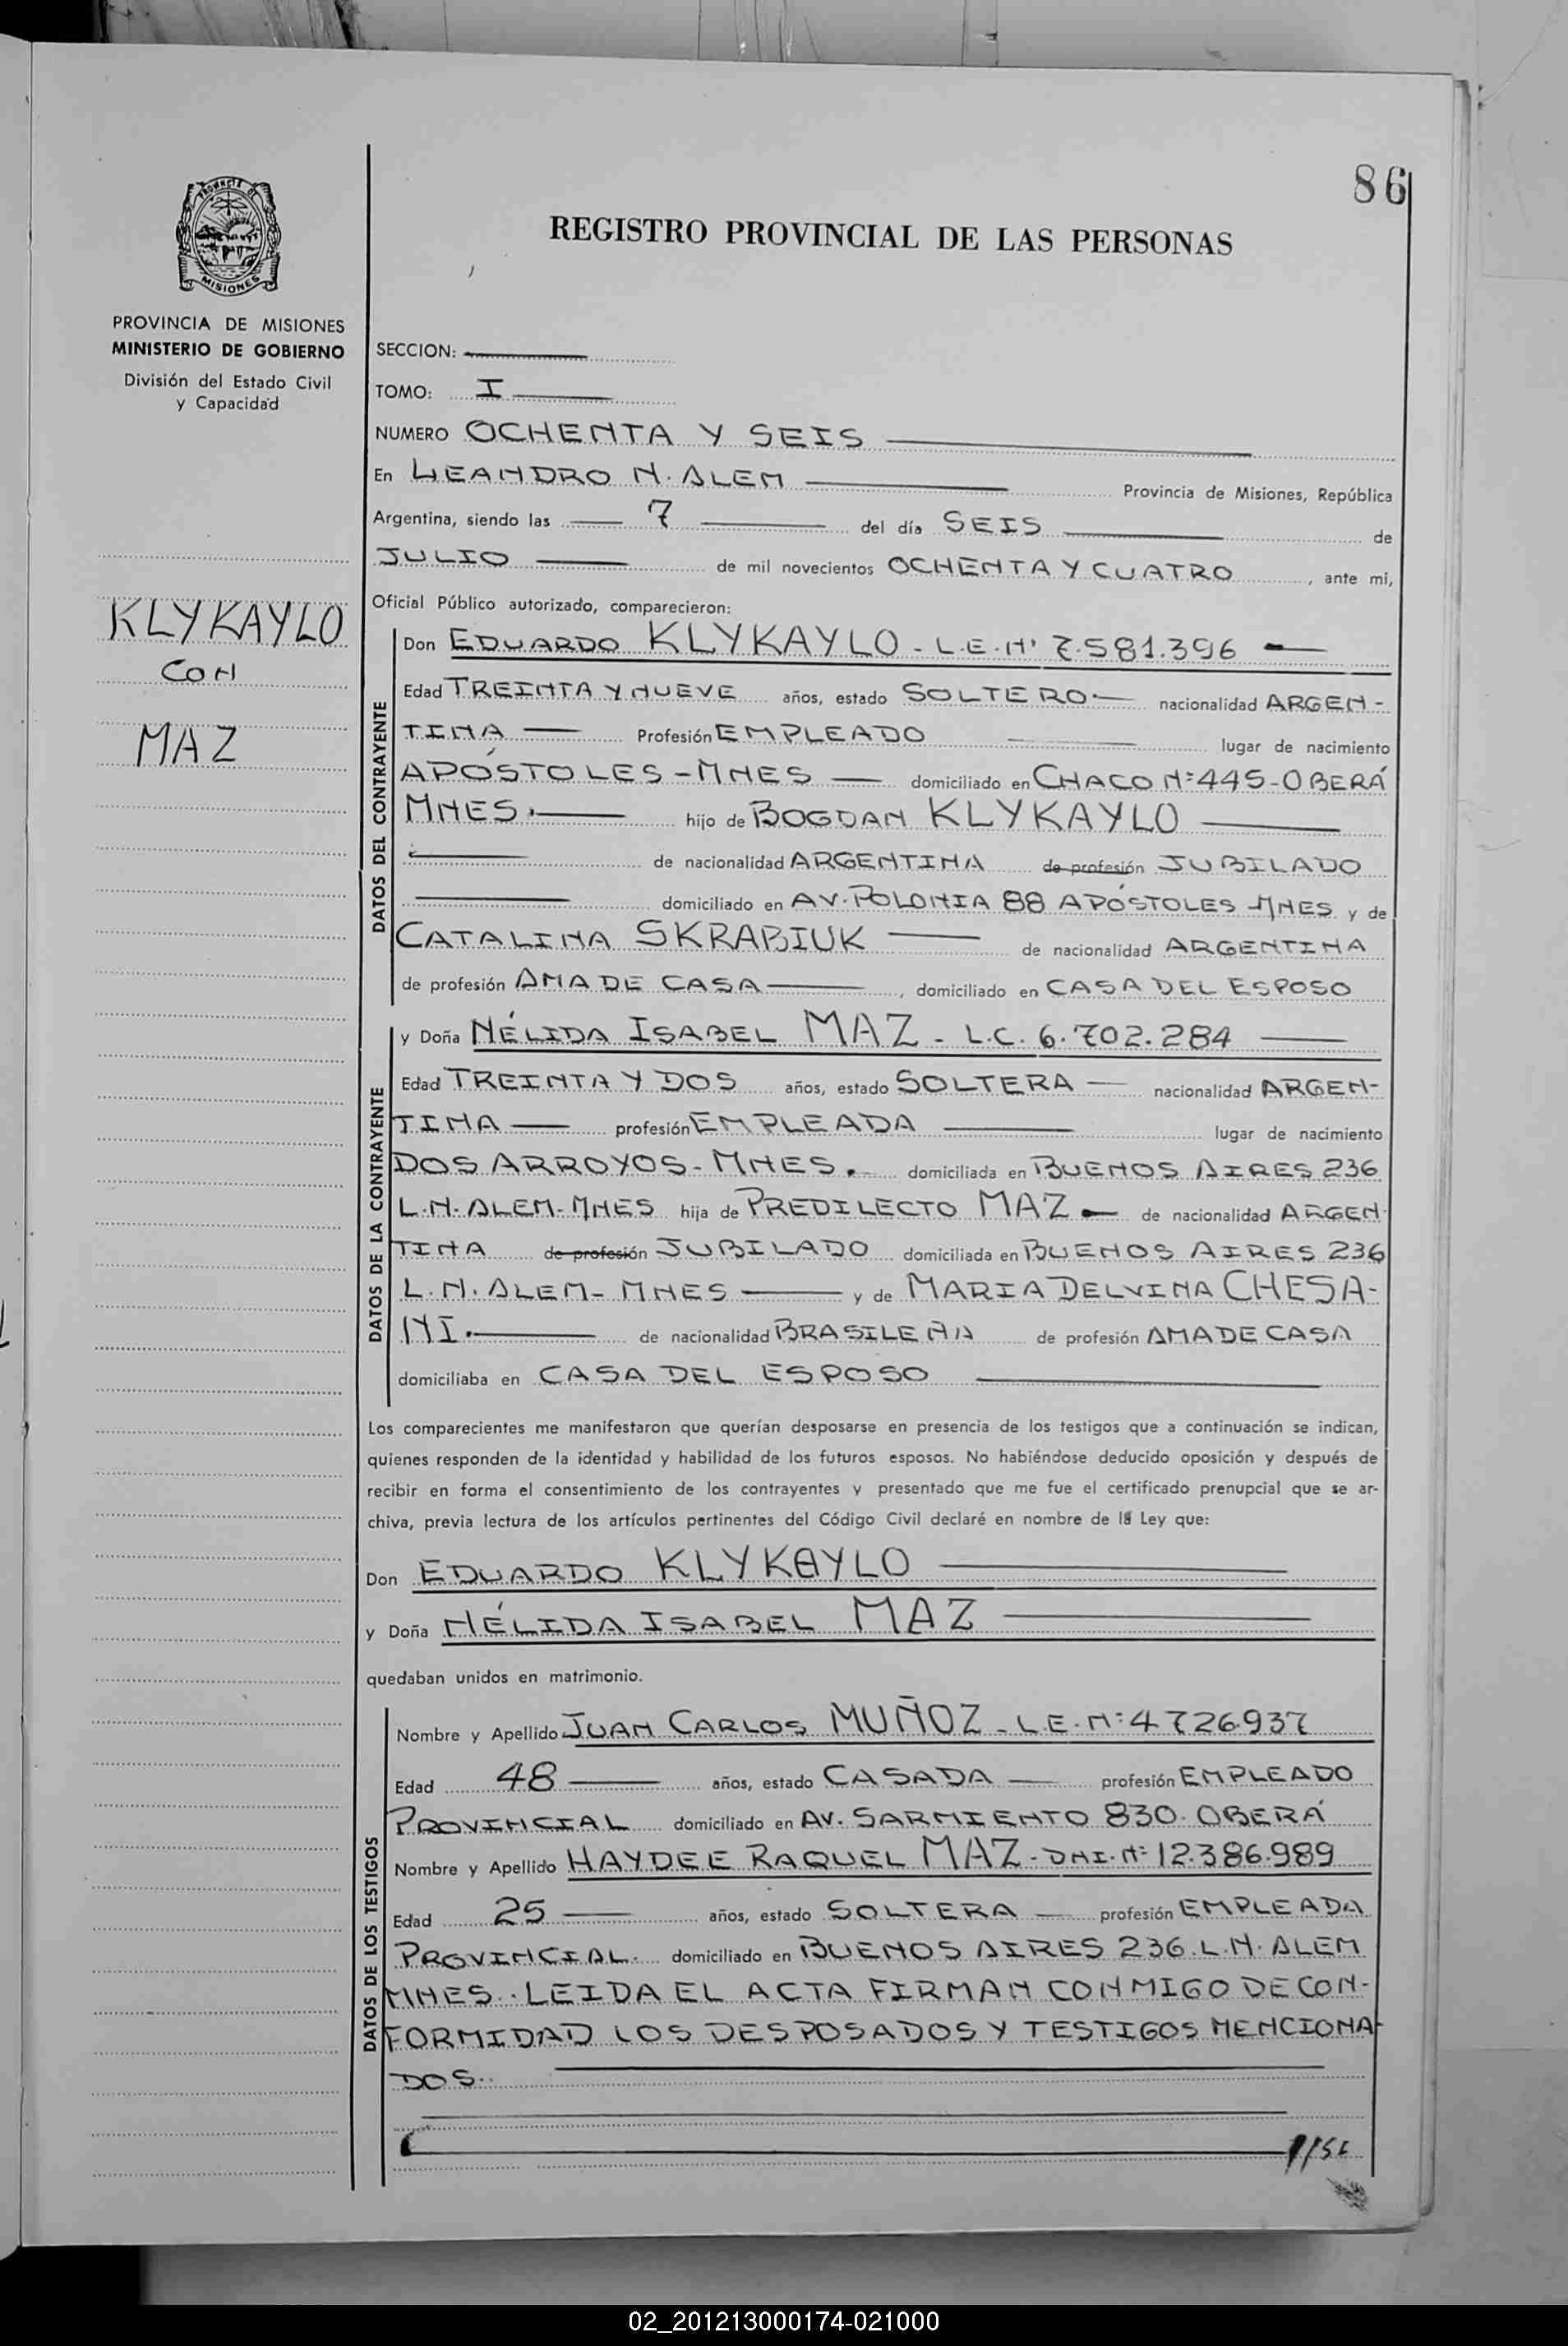 86
REGISTRO PROVINCIAL DE LAS PERSONAS
PROVINCIA DE MISIONES
MINISTERIO DE GOBIERNO
División del Estado Civil
y Capacidad
KLYKAYLO
CON
MAZ
SECCION:
TOMO: I
NUMERO OCHENTA Y SEIS
En LEANDRO N. ALEM Provincia de Misiones, República
Argentina, siendo las 7 del día SEIS de
JULIO de mil novecientos OCHENTA Y CUATRO, ante mi,
Oficial Público autorizado, comparecieron:
DATOS DEL CONTRAYENTE
Don EDUARDO KLYKAYLO - L.E. Nº 7.581.396
Edad TREINTA Y NUEVE años, estado SOLTERO nacionalidad ARGEN-
TINA Profesión EMPLEADO lugar de nacimiento
APÓSTOLES - MNES domiciliado en CHACO Nº 445 - OBERÁ
MNES. hijo de BOGDAN KLYKAYLO
de nacionalidad ARGENTINA de profesión JUBILADO
domiciliado en AV. POLONIA 88 APÓSTOLES - MNES y de
CATALINA SKRABIUK de nacionalidad ARGENTINA
de profesión AMA DE CASA, domiciliado en CASA DEL ESPOSO
DATOS DE LA CONTRAYENTE
y Doña NÉLIDA ISABEL MAZ - L.C. 6.702.284
Edad TREINTA Y DOS años, estado SOLTERA nacionalidad ARGEN-
TINA profesión EMPLEADA lugar de nacimiento
DOS ARROYOS - MNES. domiciliada en BUENOS AIRES 236
L.N. ALEM - MNES hija de PREDILECTO MAZ de nacionalidad ARGEN-
TINA de profesión JUBILADO domiciliada en BUENOS AIRES 236
L.N. ALEM - MNES y de MARIA DELVINA CHESA-
NI. de nacionalidad BRASILEÑA de profesión AMA DE CASA
domiciliaba en CASA DEL ESPOSO
Los comparecientes me manifestaron que querían desposarse en presencia de los testigos que a continuación se indican,
quienes responden de la identidad y habilidad de los futuros esposos. No habiéndose deducido oposición y después de
recibir en forma el consentimiento de los contrayentes y presentado que me fue el certificado prenupcial que se ar-
chiva, previa lectura de los artículos pertinentes del Código Civil declaré en nombre de la Ley que:
Don EDUARDO KLYKAYLO
y Doña NÉLIDA ISABEL MAZ
quedaban unidos en matrimonio.
DATOS DE LOS TESTIGOS
Nombre y Apellido JUAN CARLOS MUÑOZ - L.E. Nº 4726937
Edad 48 años, estado CASADA profesión EMPLEADO
PROVINCIAL domiciliado en AV. SARMIENTO 830. OBERÁ
Nombre y Apellido HAYDEE RAQUEL MAZ - DNI. Nº 12.386.989
Edad 25 años, estado SOLTERA profesión EMPLEADA
PROVINCIAL. domiciliado en BUENOS AIRES 236. L.N. ALEM
MNES. LEIDA EL ACTA FIRMAN CONMIGO DE CON-
FORMIDAD LOS DESPOSADOS Y TESTIGOS MENCIONA-
DOS.
02_201213000174-021000